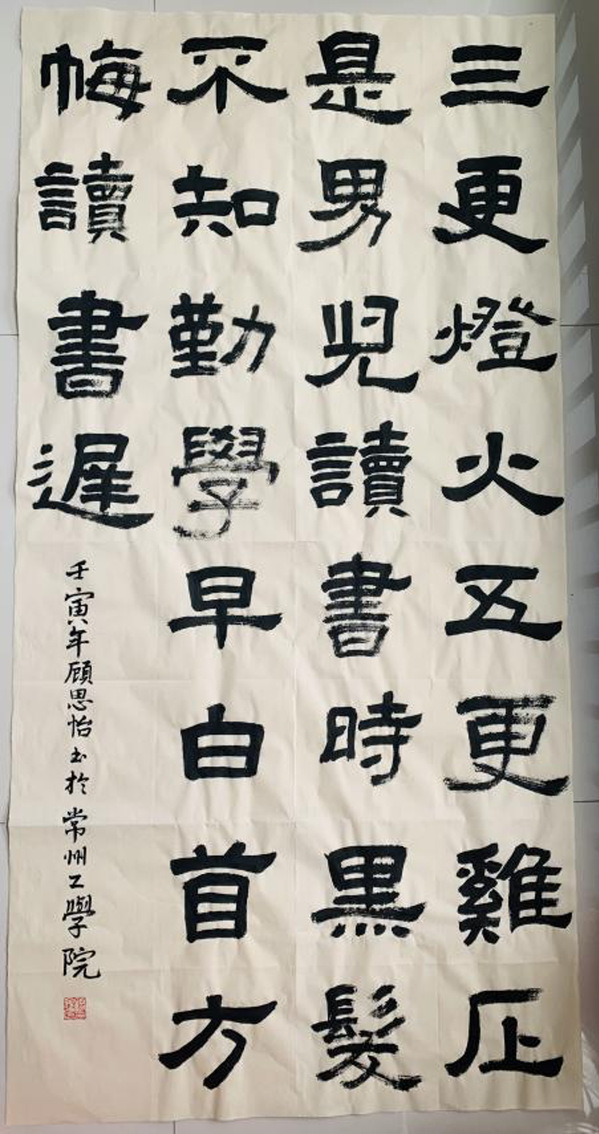 三更燈火五更雞正
是男兒讀書時黑髮
不知勤學早白首方
悔讀書遲
壬寅年顾思怡书於常州工學院